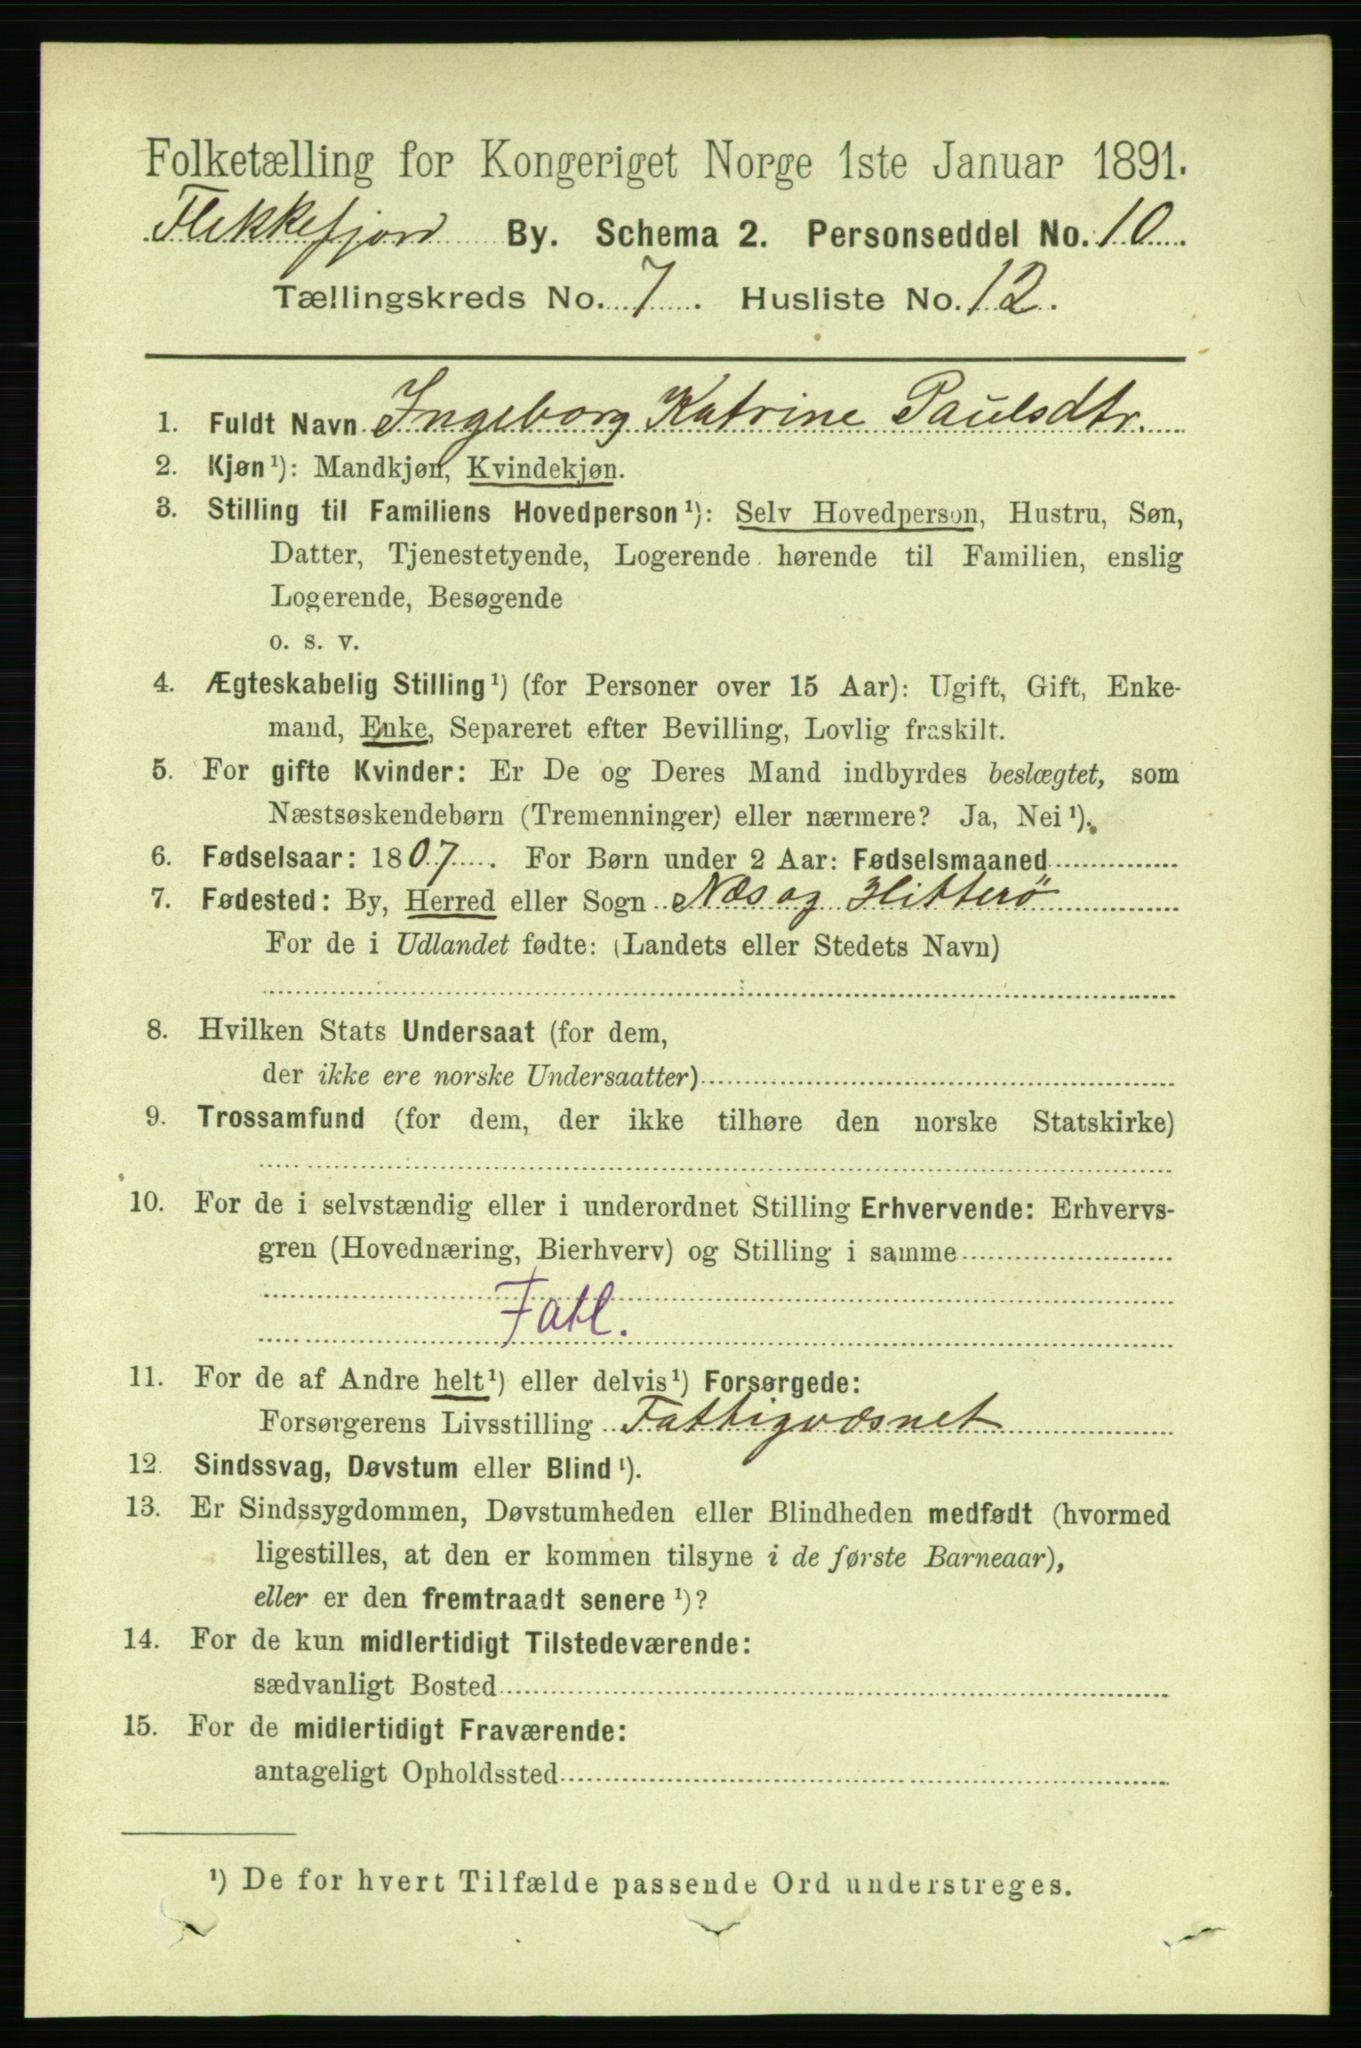 Folketælling for Kongeriget Norge 1ste Januar 1891.
Flekkefjord By. Schema 2. Personseddel No. 10
Tællingskreds No. 7. Husliste No. 12.
1. Fuldt Navn Ingeborg Katrine Paulsdtr.
2. Kjøn¹): Mandkjøn, Kvindekjøn.
3. Stilling til Familiens Hovedperson¹): Selv Hovedperson, Hustru, Søn,
Datter, Tjenestetyende, Logerende hørende til Familien, enslig
Logerende, Besøgende
o. s. v.
4. Ægteskabelig Stilling¹) (for Personer over 15 Aar): Ugift, Gift, Enke-
mand, Enke, Separeret efter Bevilling, Lovlig fraskilt.
5. For gifte Kvinder: Er De og Deres Mand indbyrdes beslægtet, som
Næstsøskendebørn (Tremenninger) eller nærmere? Ja, Nei¹).
6. Fødselsaar: 1807. For Børn under 2 Aar: Fødselsmaaned
7. Fødested: By, Herred eller Sogn Næs og Hitterö
For de i Udlandet fødte: (Landets eller Stedets Navn)
8. Hvilken Stats Undersaat (for dem,
der ikke ere norske Undersaatter)
9. Trossamfund (for dem, der ikke tilhøre den norske Statskirke)
10. For de i selvstændig eller i underordnet Stilling Erhvervende: Erhvervs-
gren (Hovednæring, Bierhverv) og Stilling i samme
Fatl.
11. For de af Andre helt¹) eller delvis¹) Forsørgede:
Forsørgerens Livsstilling Fattigvæsnet
12. Sindssvag, Døvstum eller Blind¹).
13. Er Sindssygdommen, Døvstumheden eller Blindheden medfødt (hvormed
ligestilles, at den er kommen tilsyne i de første Barneaar),
eller er den fremtraadt senere¹)?
14. For de kun midlertidigt Tilstedeværende:
sædvanligt Bosted
15. For de midlertidigt Fraværende:
antageligt Opholdssted
¹) De for hvert Tilfælde passende Ord understreges.